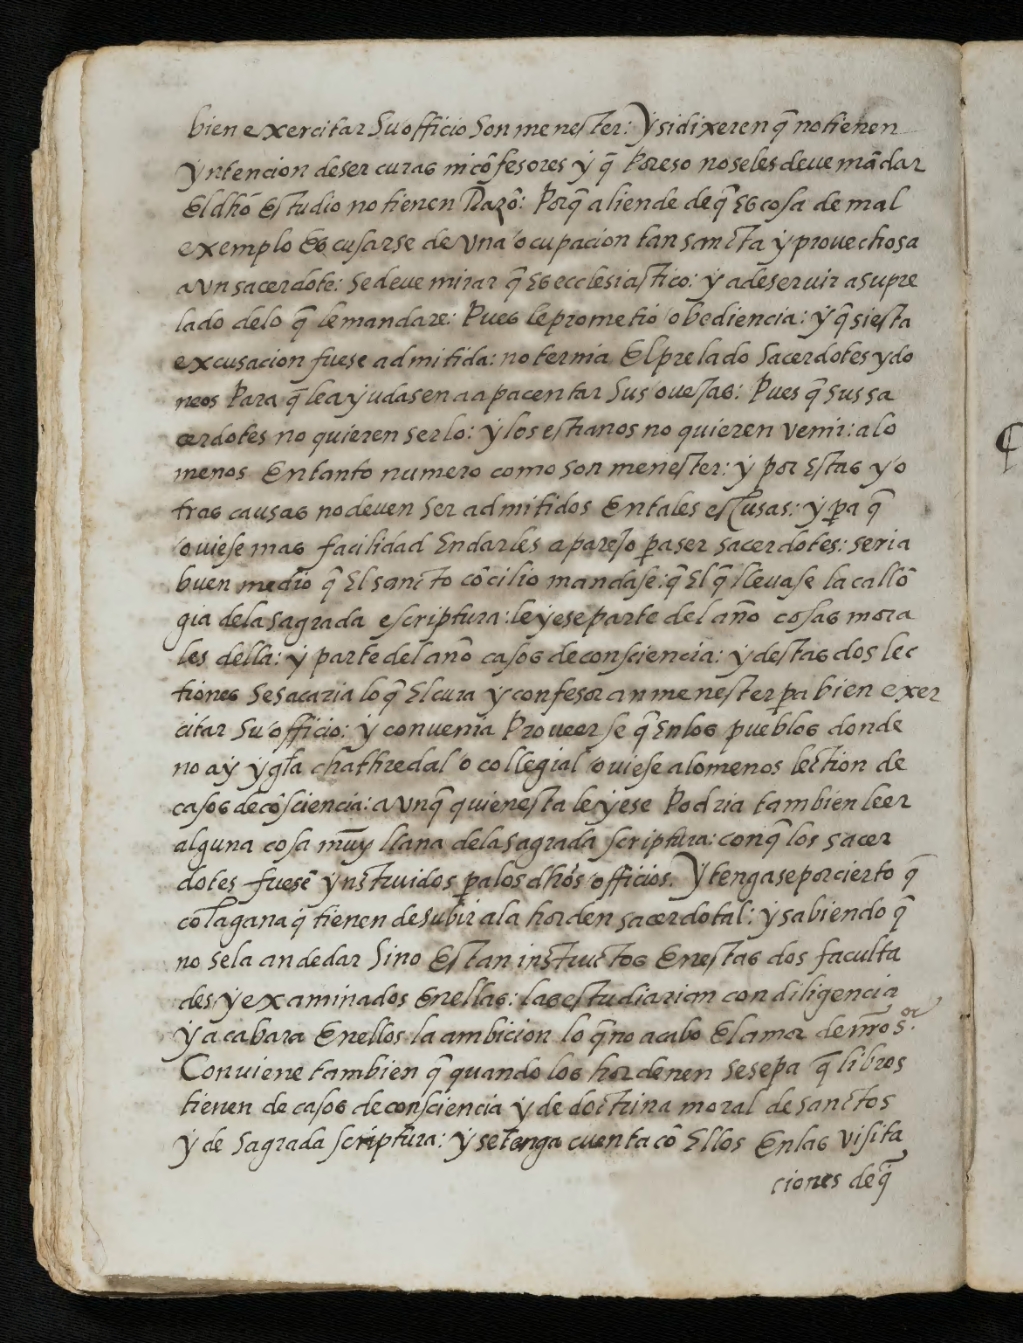 bien exercitar Su officio Son menester: Y si dixeren q̃ no tienen
yntencion de ser curas ni cõfesores y q̃ Por eso no se les deve mãdar
El dħo Estudio no tienen Razõ: Porq̃ aliende de q̃ Es cosa de mal
exemplo Escusarse de vna ocupacion tan sancta y prouechosa
a vn sacerdote: se deve mirar q̃ Es ecclesiastico: y a de seruir a su pre
lado de lo q̃ le mandare: Pues le prometio obediencia: y q̃ si esta
excusacion fuese admitida: no ternia El prelado Sacerdotes ydo
neos Para q̃ le ayudasen a apacentar Sus ouejas: Pues q̃ sus sa
cerdotes no quieren serlo: y los estranos no quieren venir: a lo
menos En tanto numero como son menester: y por Estas y o
tras causas no deven Ser admitidos En tales escusas: y pa q̃
ouiese mas facilidad En darles aparejo pa ser sacerdotes: seria
buen medio q̃ El sancto cõcilio mandase: q̃ El q̃ lleuase la callõ
gia de la Sagrada escriptura: leyese parte del año cosas mora
les della: y parte del año casos de consciencia: y destas dos lec
tiones Se sacaria lo q̃ El cura y confesor an menester pa bien exer
citar Su officio: y convenia Proveerse q̃ En los pueblos donde
no ay ygła chathredal o collegial ouiese a lo menos lection de
casos de cõsciencia: avnq̃ quien esta leyese Podria tambien leer
alguna cosa muy llana de la Sagrada scriptura: con q̃ los sacer
dotes fuesẽ ynstruidos pa los dħos officios. Y tengase por cierto q̃
cõ la gana q̃ tienen de subir a la horden sacerdotal: y sabiendo q̃
no se la an de dar Sino Estan instructos En estas dos faculta
des y examinados En ellas: las estudiarian con diligencia
y acabara En ellos la ambicion lo q̃ no acabo El amor de nr̃o Sor.
Conviene tambien q̃ quando los hordenen se sepa q̃ libros
tienen de casos de consciencia y de doctrina moral de sanctos
y de Sagrada scriptura: y se tenga cuenta cõ Ellos En las visita
ciones de q̃